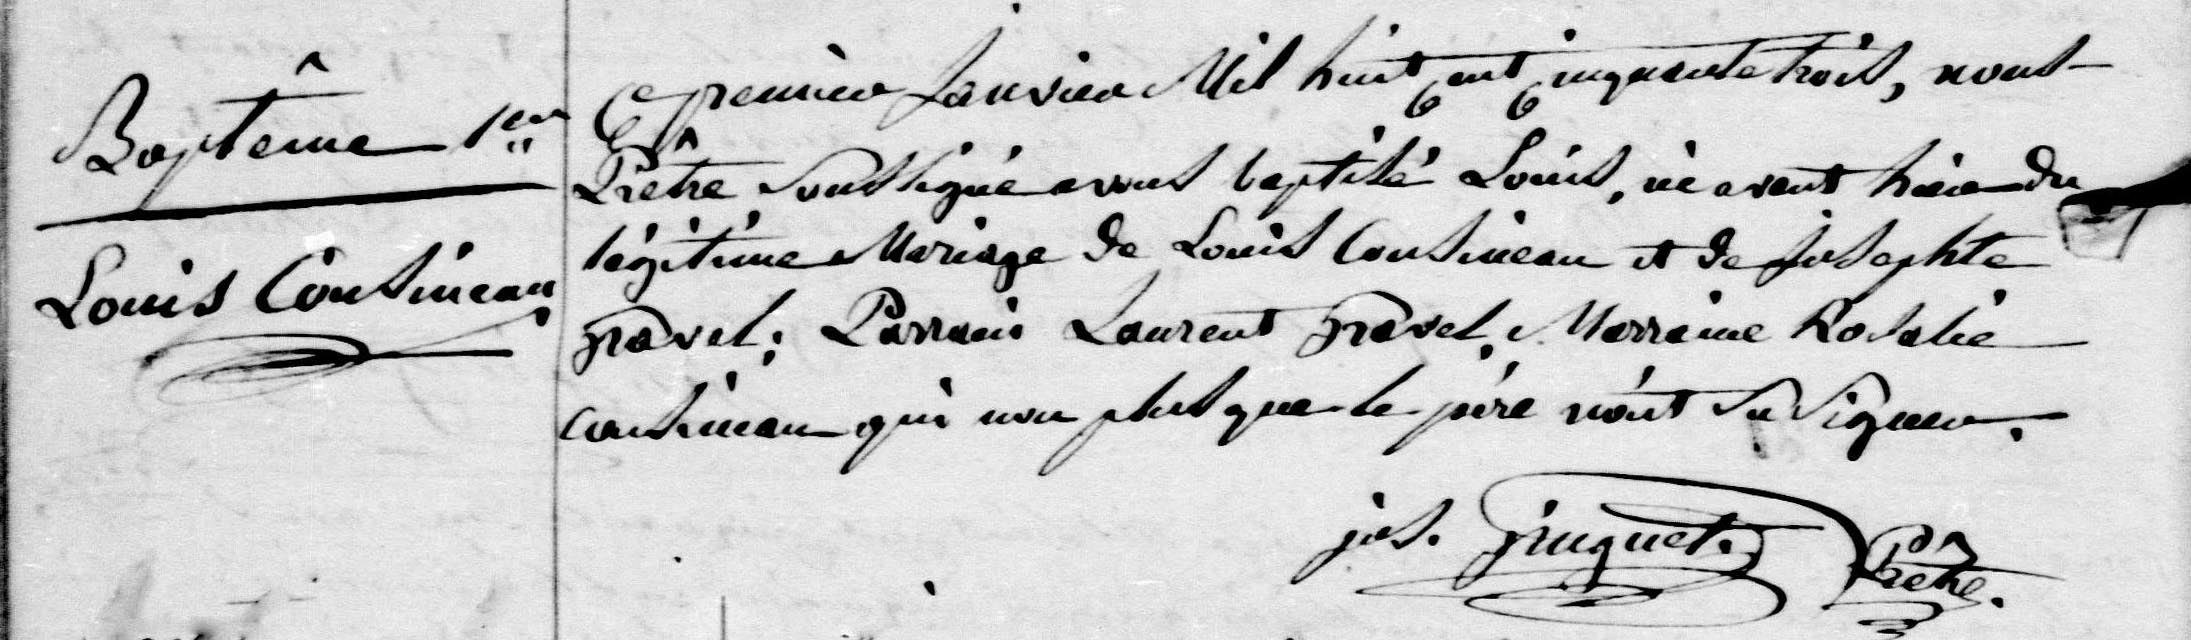 Baptême 1er
Louis Cousineau.
Ce premier Janvier Mil huit Cent Cinquante trois, nous
Prêtre soussigné avons baptisé Louis, né avant hier du
légitime Mariage de Louis Cousineau et de Josephte
Gravel; Parrain Laurent Gravel, Marraine Rosalie
Cousineau qui non plus que le père n'ont su signer.
jos. Prêtre.